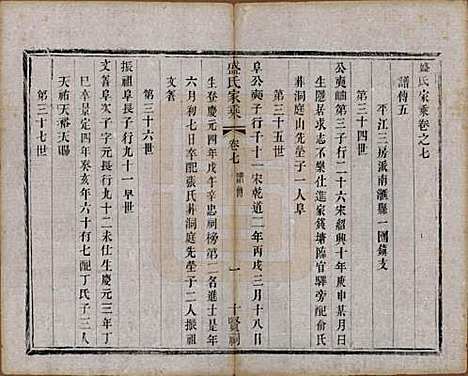 盛氏家乘卷之七
譜傳五
平江三房派南滙縣一團鎮支
第三十四世
公爽嶙第三子行二十六宋紹興十年庚申某月日
生隱居求志不樂仕進家錢塘臨官驛旁配俞氏
葬洞庭山先塋子一人阜
第三十五世
阜公爽子行千十一宋乾道二年丙戌三月十八日
盛氏家乘
卷七
譜傳
一
十賢祠
生登慶元四年戊午辛忠祠榜第二名進士是年
六月初七日卒配張氏葬洞庭先塋子二人振祖
文著
第三十六世
振祖阜長子行九十一早世
文著阜次子行丁三行九十二生慶元三年丁
巳卒景定四年癸亥年六十有七配丁氏子三人
天祐天福天賜
第三十七世